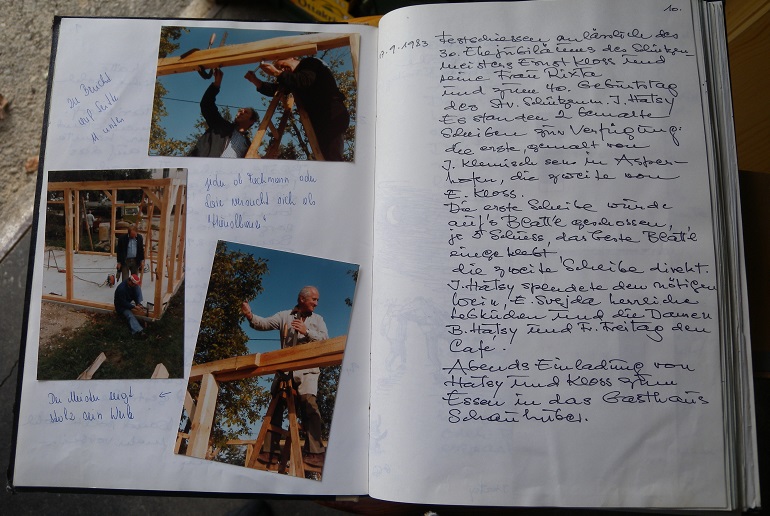 Zu Bruch
auf
jeder ob Fachmann, oder
Laie versucht sich als
"Häuslbauer"
Der Meister zeigt
stolz sein Werk
←
10.
8.9.1983 Festschiessen anlässlich des
30. Ehejubiläums des Schützen-
meisters Ernst Kloss und
seine Frau Rixta
und zum 40. Geburtstag
des Stv. Schützenm. J. Hatsy
Es standen 2 bemalte
Scheiben zur Verfügung:
die erste, gemalt von
J. Klemisch sen in Asper-
hofen, die zweite von
E. Kloss.
Die erste Scheibe wurde
auf's Beatl'e geschossen,
je 5 Schuss, das beste Beatl'e
eingeklebt
die zweite Scheibe direkt.
J. Hatsy spendete den nötigen
Wein, E. Svejda herrliche
Lebkuchen und die Damen
B. Hatsy und Fr. Freitag den
Cafe.
Abends Einladung von
Hatsy und Kloss zum
Essen in das Gasthaus
Schauhuber.